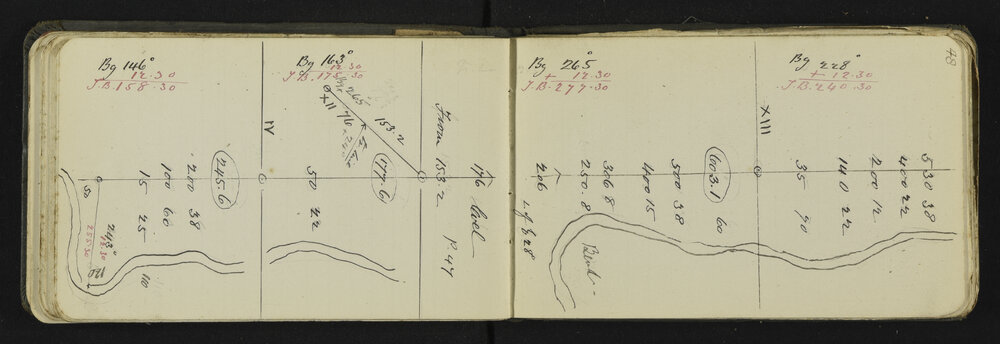 Bg 146°
12.30
T.B. 158.30
245.6
200 38
100 60
15 25
50
243°
12.30
255.30
120
110
IV
Bg 163°
12.30
T.B. 175.30
XII
265°
76
153.2
177.6
50 22
From 153.2
176 Cool P. 47
48
Bg 265°
+ 12.30
T.B. 277.30
206
250.8
306 8
400 15
500 38
603.1 60
Bend
XIII
Bg 228°
+ 12.30
T.B. 240.30
35 90
140 22
200 12
400 22
530 38